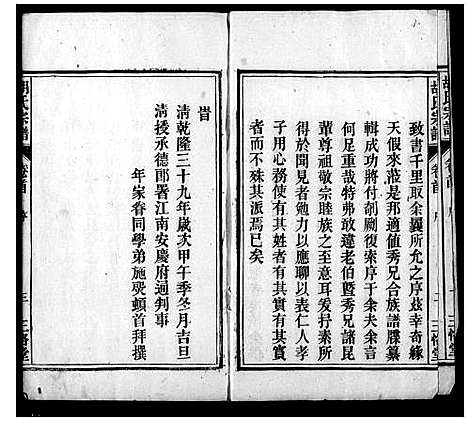 胡氏宗譜
卷首 序
三 悟堂
致書千里取余曩所允之序茲幸奇緣
天假來涖是邦適值秀兄合族譜牒纂
輯成功將付剞劂復索序于余夫余言
何足重哉特弗敢違老伯暨秀兄諸昆
輩尊祖敬宗睦族之至意耳爰抒素所
得於見聞者勉力以應聊以表仁人孝
子用心務使有其姓者有其實有其實
者而不殊其派焉已矣
旹
清乾隆三十九年歲次甲午季冬月吉旦
清授承德郎署江南安慶府通判事
年家眷同學弟施 頓首拜撰
胡氏宗譜
卷首 序
三